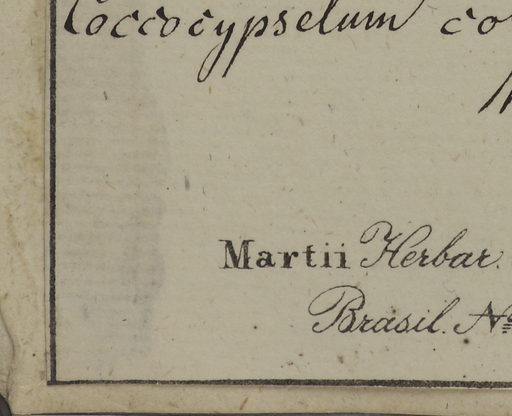 Coccocypselum co
Martii Herbar.
Brasil. No